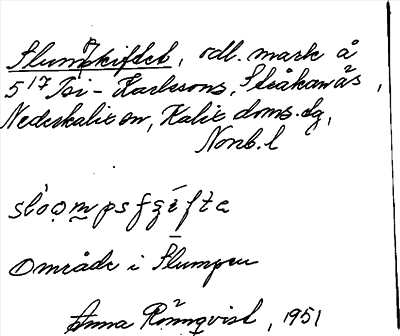 Slumpskiftet, odl. mark å
5¹⁷ Isi-Karlssons, Stråkanäs,
Nederkalix sn, Kalix doms.dg,
Nonb.l
område i Slumpen
Anna Rönnqvist, 1951